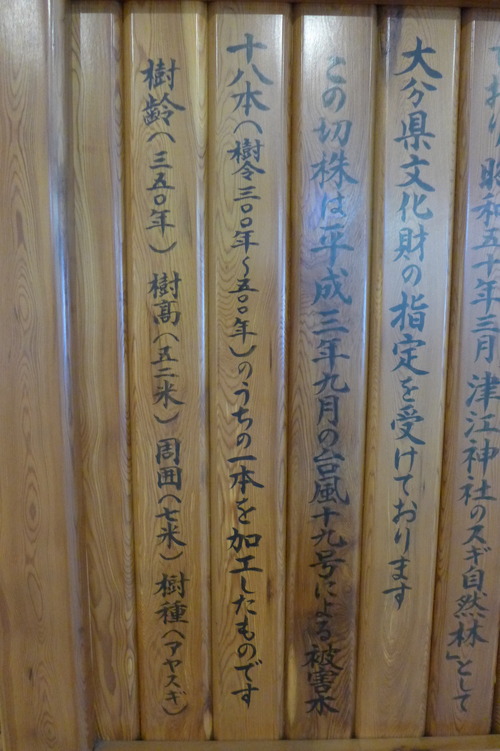 ており昭和五十年三月津江神社のスギ自然林」として
大分県文化財の指定を受けております
この切株は平成三年九月の台風十九号による被害木
十八本(樹令三〇〇年～五〇〇年)のうちの一本を加工したものです
樹齢(三五〇年) 樹高(五二米) 周囲(七米) 樹種(アヤスギ)